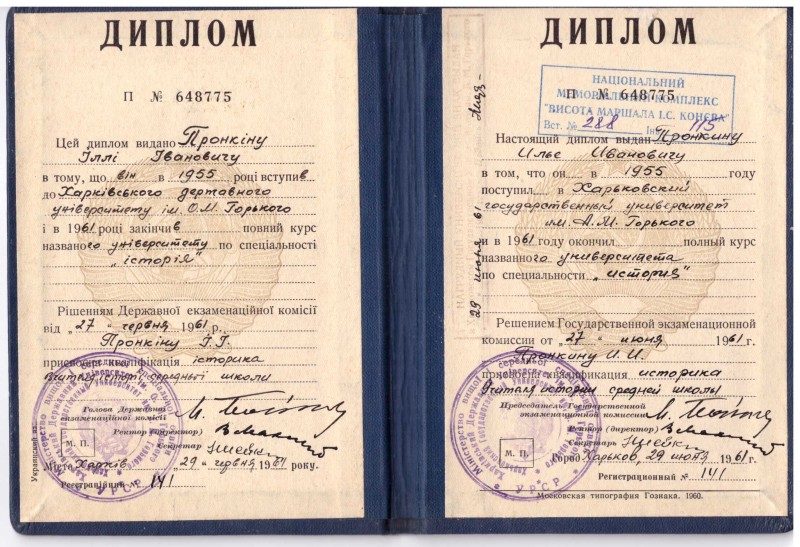 ДИПЛОМ
П № 648775
Цей диплом видано Пронкіну
Іллі Івановичу
в тому, що він в 1955 році вступив
до Харківського державного
університету ім. О.М. Горького
і в 1961 році закінчив повний курс
названого університету по спеціальності
„історія"
Рішенням Державної екзаменаційної комісії
від „27" червня 1961 р.
Пронкіну І.І.
присвоєно кваліфікація історика
вчителя історії середньої школи
Голова Державної
екзаменаційної комісії
Ректор (директор)
Секретар
М. П.
Місто Харків „29" червня 1961 року.
Реєстраційний № 141
УРСР
ДИПЛОМ
П № 648775
НАЦІОНАЛЬНИЙ
МЕМОРІАЛЬНИЙ КОМПЛЕКС
"ВИСОТА МАРШАЛА І.С. КОНЄВА"
Вст. № 288 Інв. 115
Настоящий диплом выдан Пронкину
Илье Ивановичу
в том, что он в 1955 году
поступил в Харьковский
государственный университет
им. А.М. Горького
и в 1961 году окончил полный курс
названного университета
по специальности „история"
29 июня 61
Решением Государственной экзаменационной
комиссии от „27" июня 1961 г.
Пронкину И.И.
присвоена квалификация историка
учителя истории средней школы
Председатель Государственной
экзаменационной комиссии
Ректор (директор)
Секретарь
М. П.
Город Харьков, 29 июня 1961 г.
Регистрационный № 141
УРСР
Московская типография Гознака. 1960.